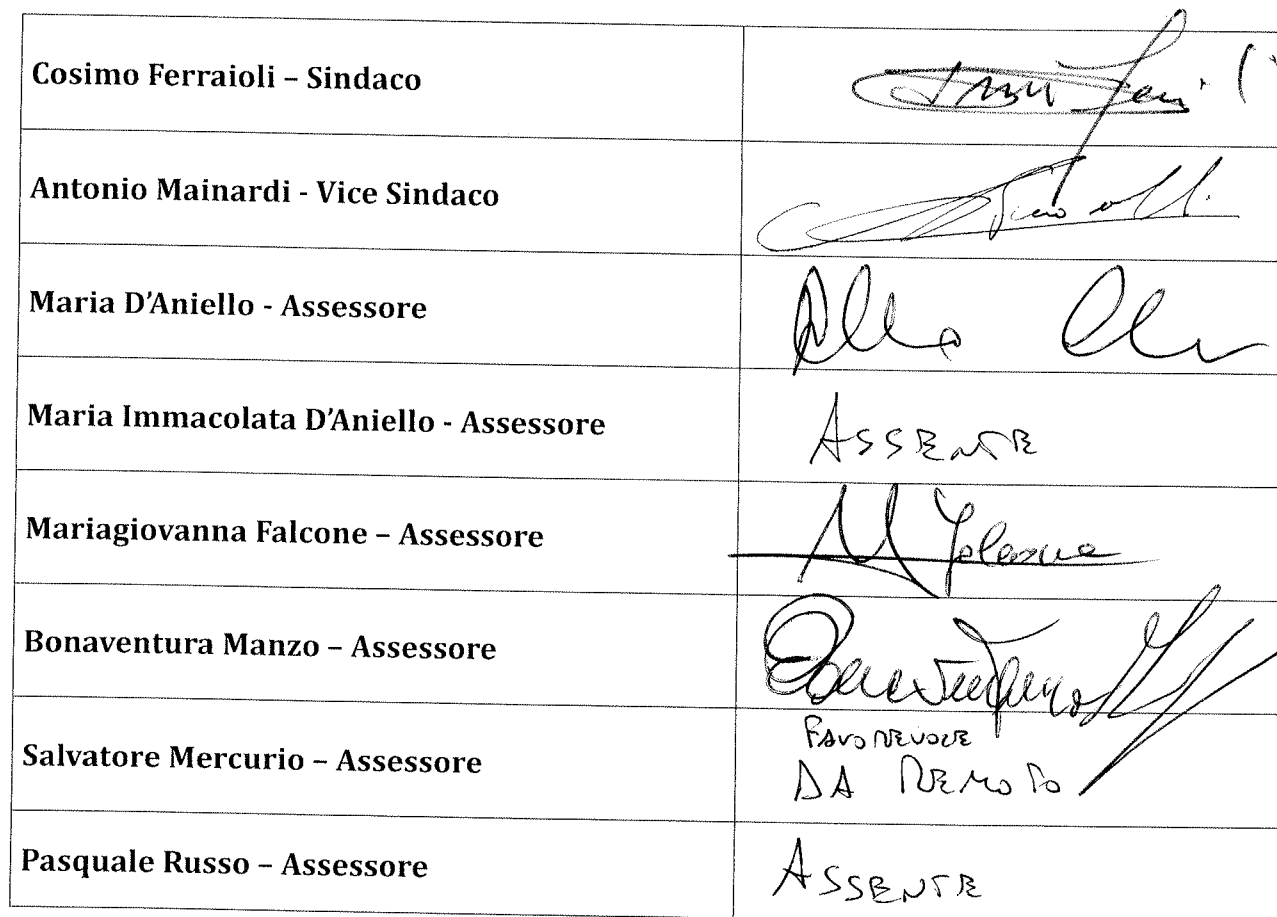 Cosimo Ferraioli – Sindaco
Antonio Mainardi - Vice Sindaco
Maria D'Aniello - Assessore
Maria Immacolata D'Aniello - Assessore
ASSENTE
Mariagiovanna Falcone – Assessore
M Falcone
Bonaventura Manzo – Assessore
Salvatore Mercurio – Assessore
FAVOREVOLE
DA REMOTO
Pasquale Russo – Assessore
ASSENTE